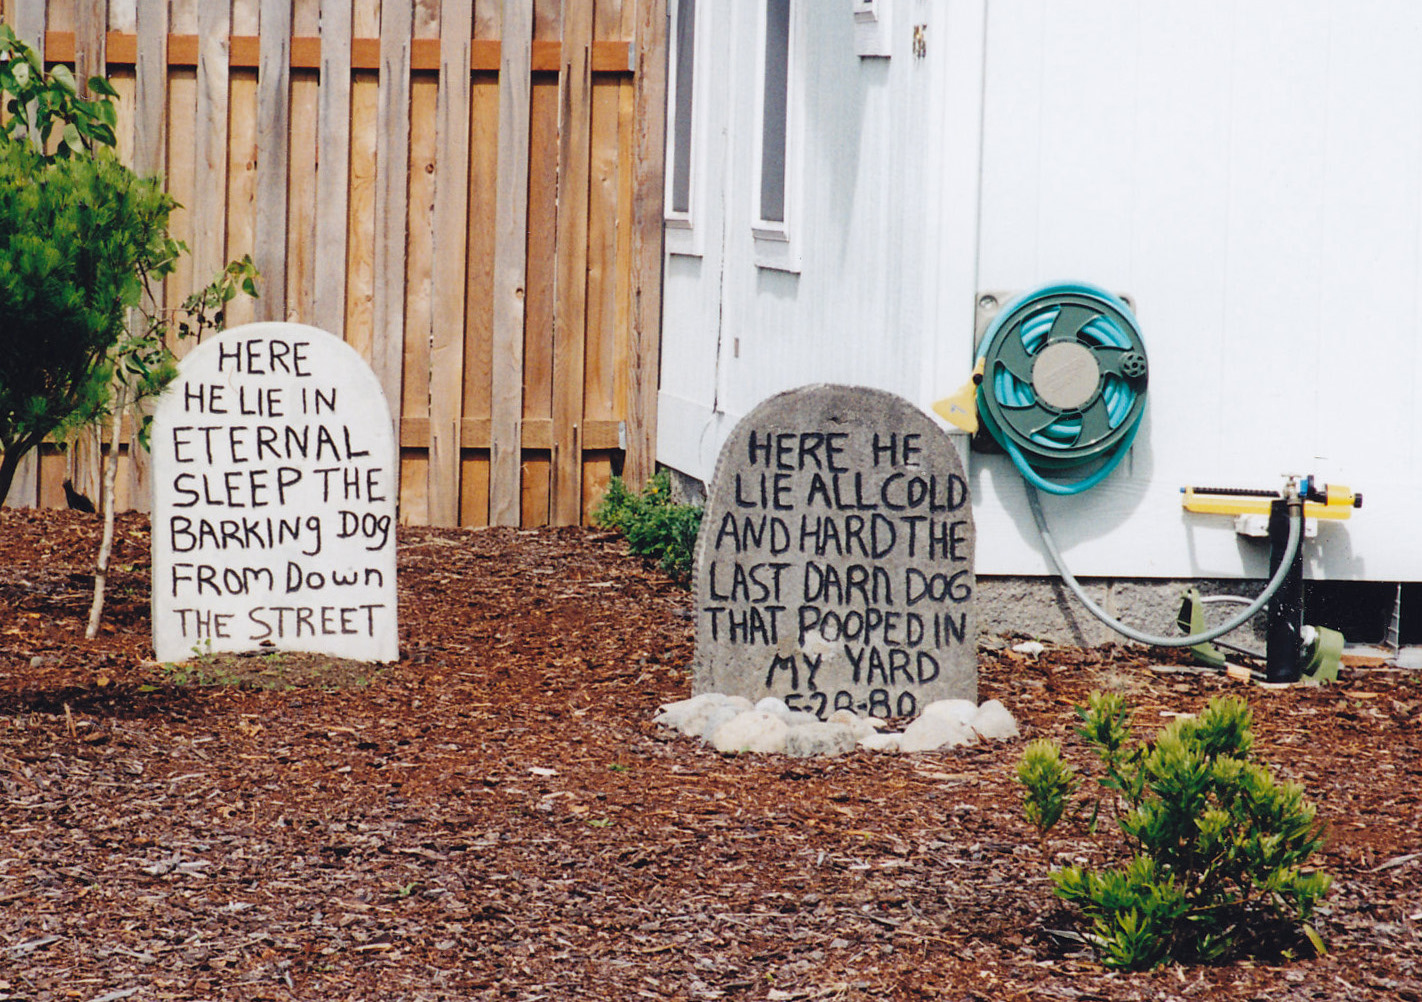 HERE
HE LIE IN
ETERNAL
SLEEP THE
BARKINg DOg
FROM DOwn
THE STREET
HERE HE
LIE ALL COLD
AND HARD THE
LAST DARn DOG
THAT POOPED IN
MY YARD
5-28-80